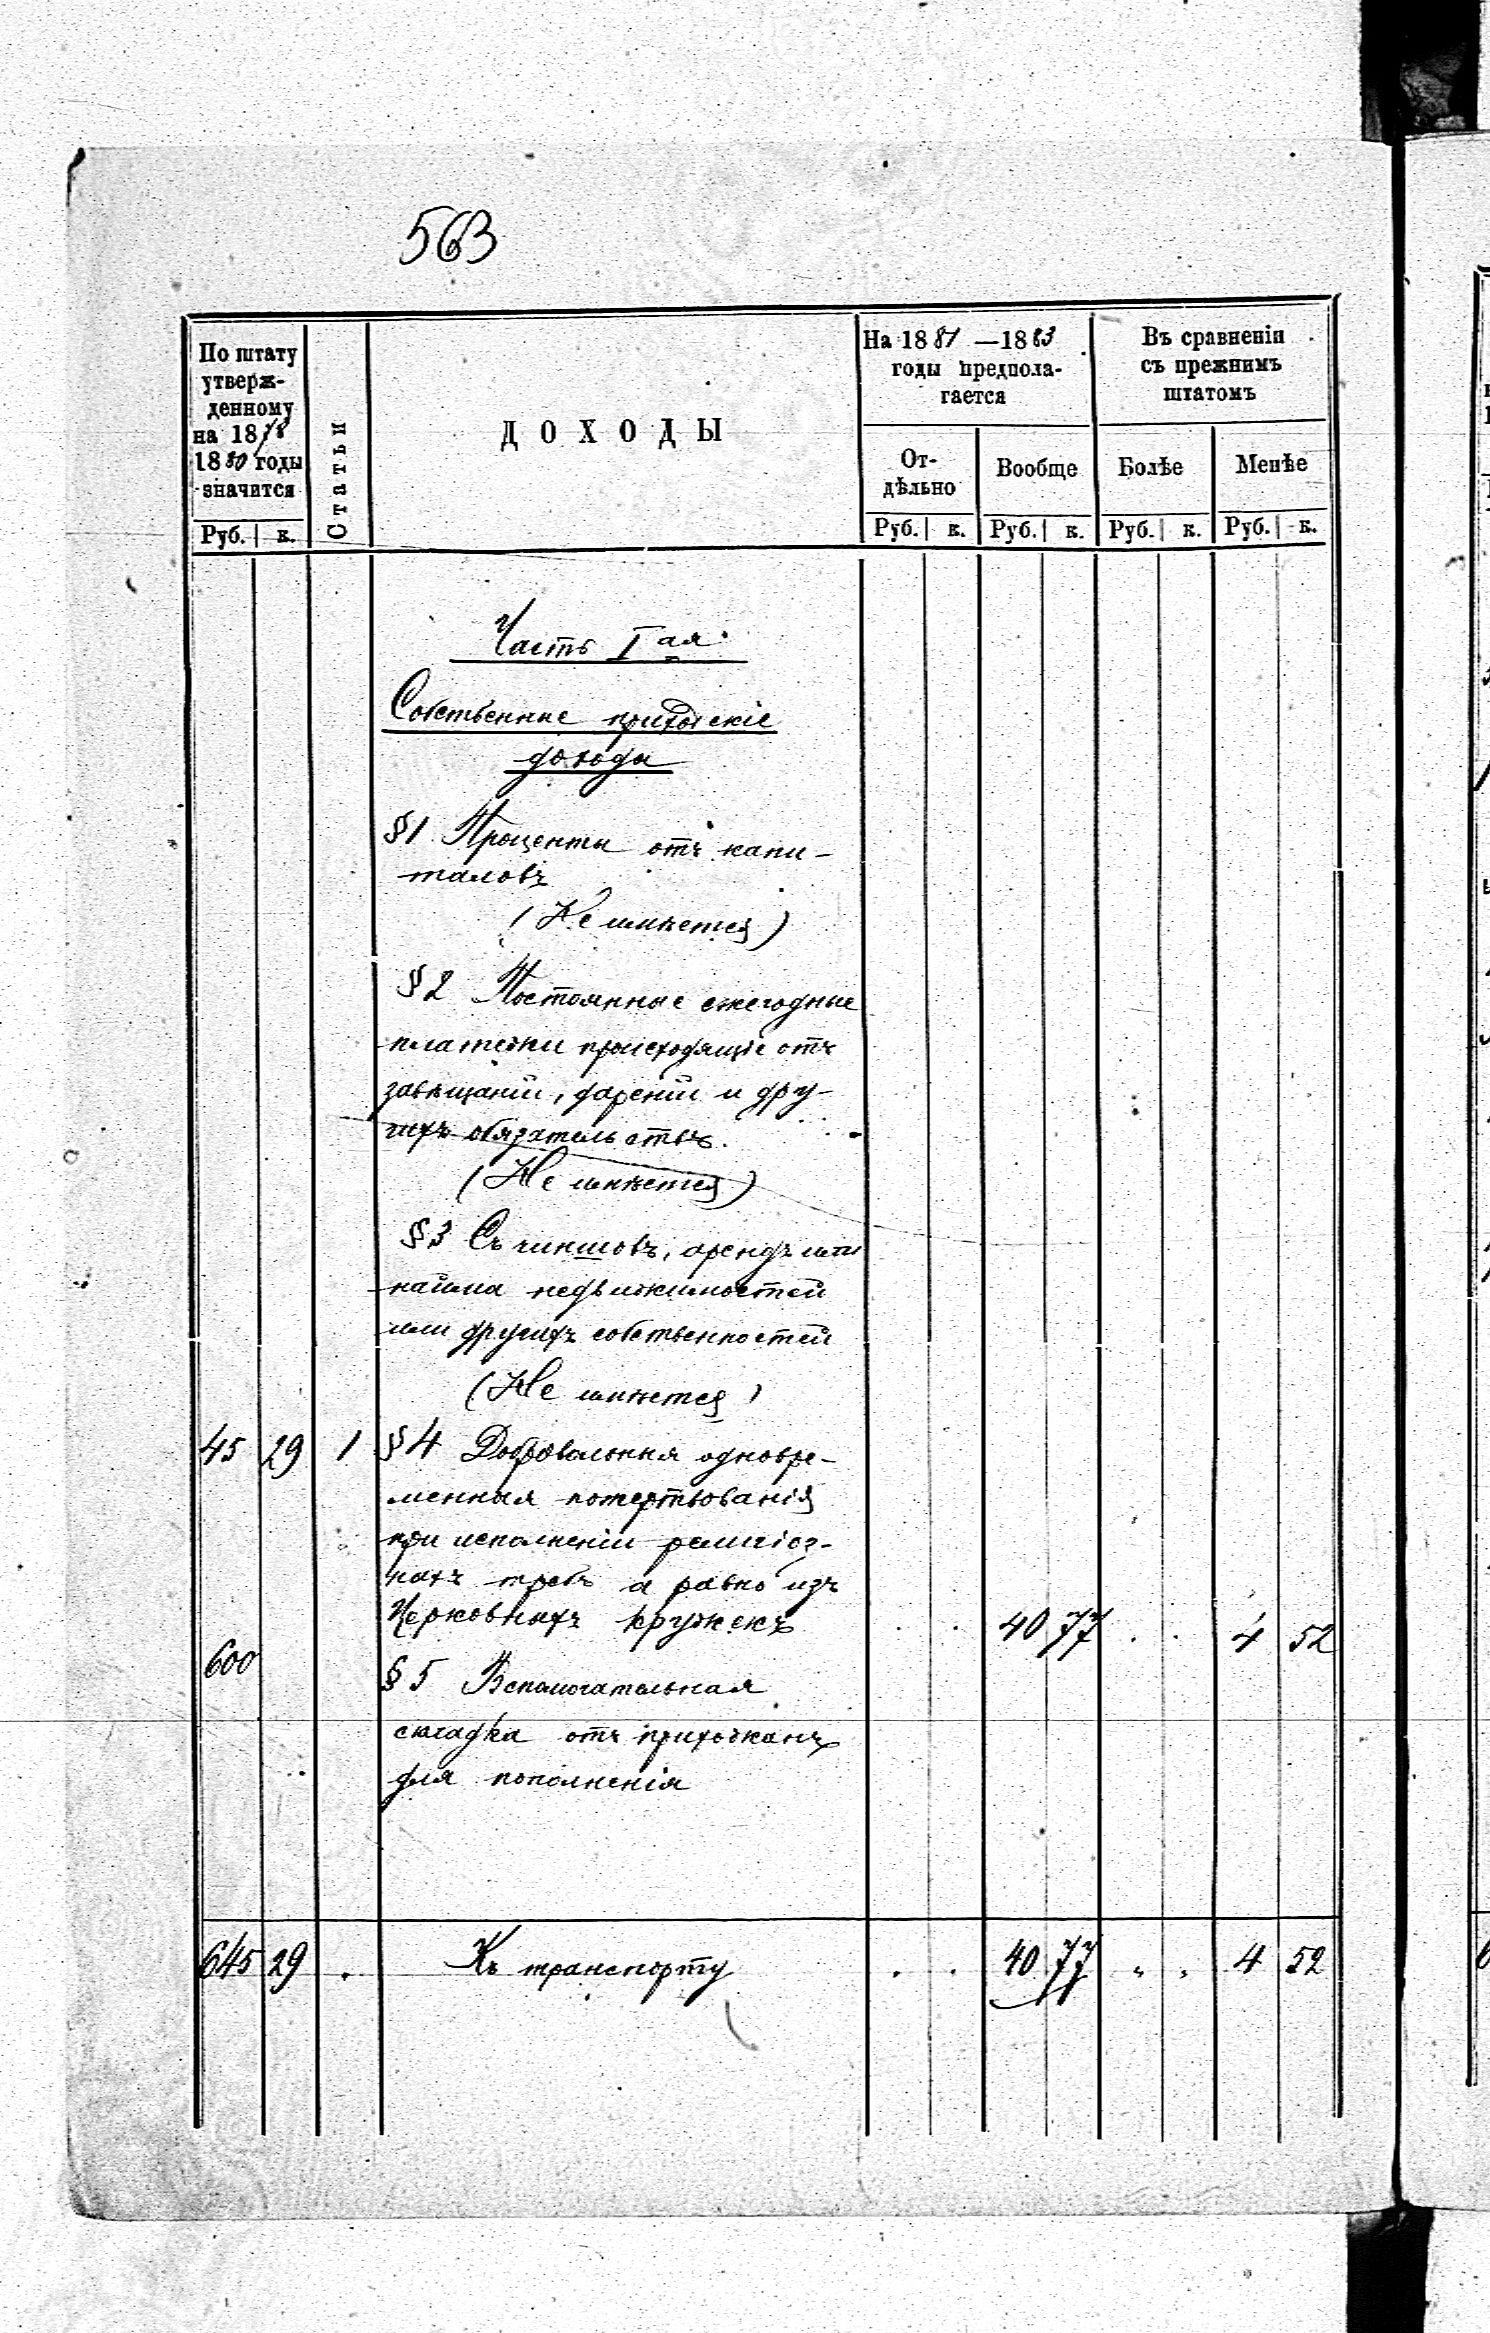 563
По штату
утверж-
денному
на 1878
1880 годы
значится
Руб. к.
Статьи
ДОХОДЫ
На 1881 —1883
годы предпола-
гается
От-
дѣльно
Руб. к.
Вообще
Руб. к.
Въ сравненіи
съ прежнимъ
штатомъ
Болѣе
Руб. к.
Менѣе
Руб. к.
Часть I ая
Собственные приходскіе
доходы
§1 Проценты отъ капи-
таловъ
(Не имѣется)
§2 Постоянные ежегодные
платежи происходящіе отъ
завѣщаній, дареній и дру-
гихъ обязательствъ.
(Не имѣется)
§3 Съ чиншовъ, арендъ или
найма недвижимостей
или другихъ собственностей
(Не имѣется)
45 29 1 §4 Добровольныя одновре-
менныя пожертвованія
при исполненіи религіоз-
ныхъ требъ а равно изъ
Церковныхъ кружекъ . . 40 77 . . 4 52
600 §5 Вспомогательная
складка отъ прихожанъ
для пополненія
645 29 . Къ транспорту . . 40 77 „ „ 4 52